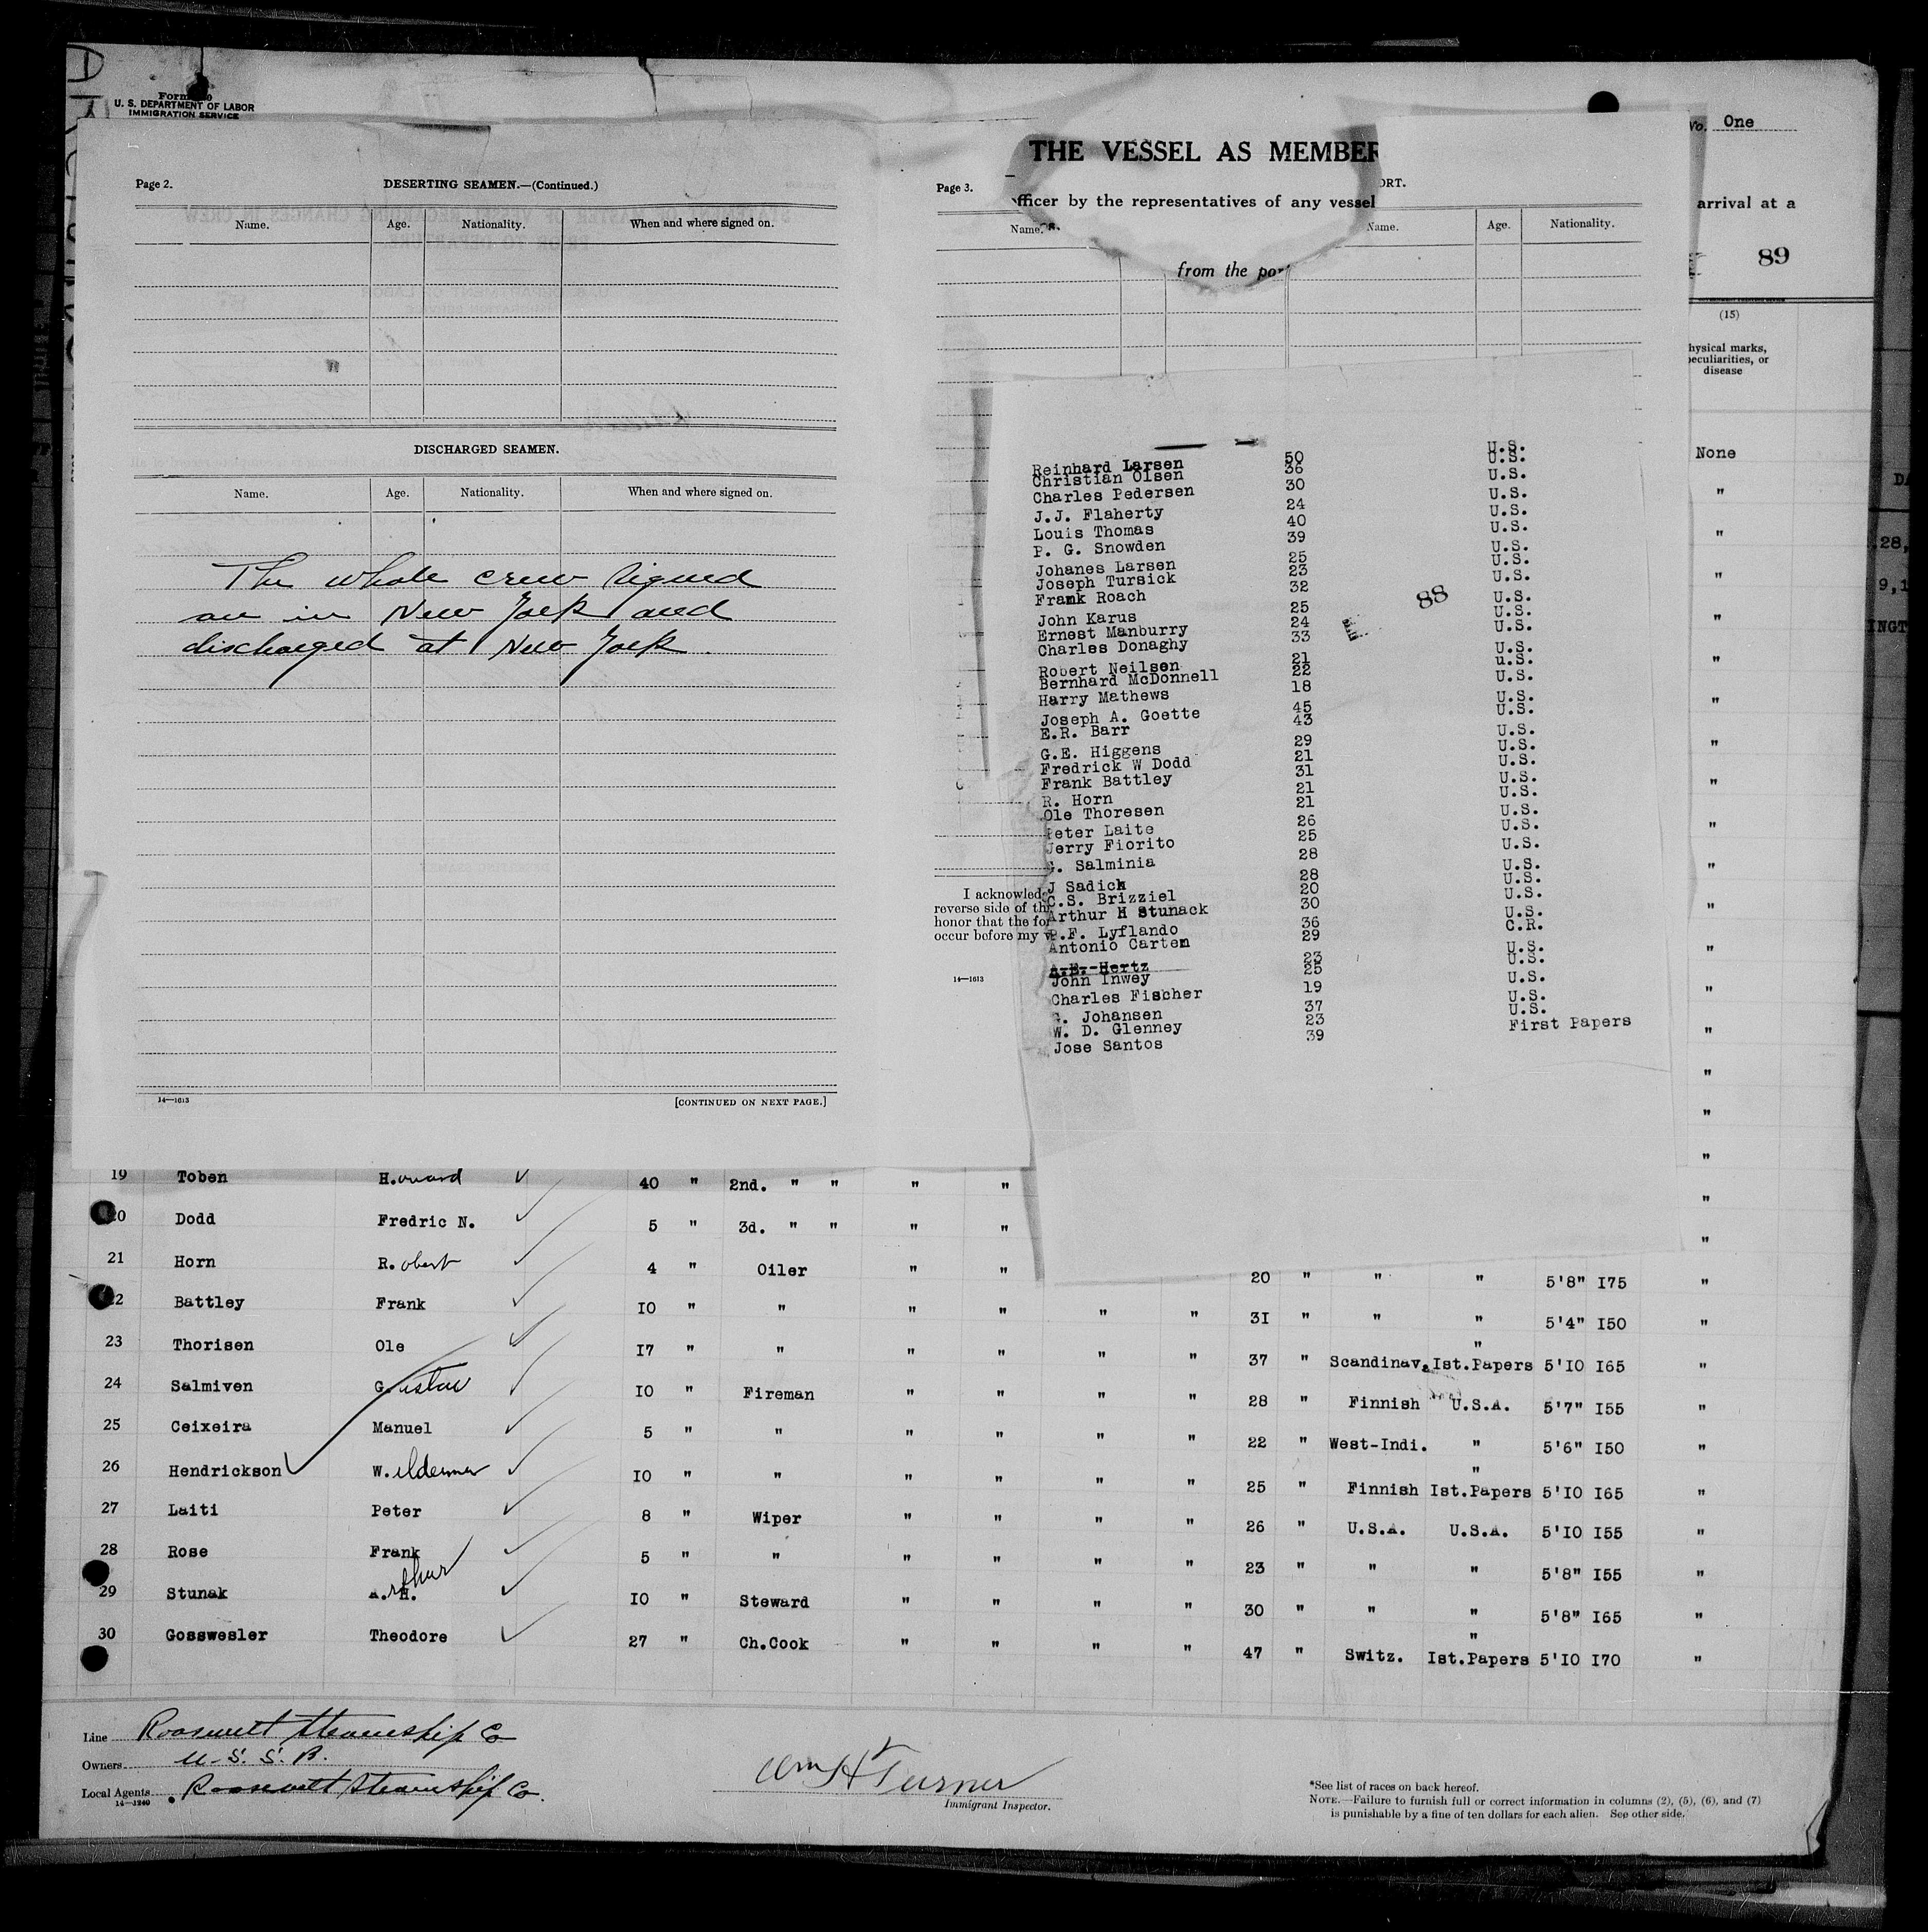 U. S. DEPARTMENT OF LABOR
IMMIGRATION SERVICE
No. One
THE VESSEL AS MEMBER
Page 2. DESERTING SEAMEN.—(Continued.)
Page 3. ORT.
officer by the representatives of any vessel
arrival at a
Name. Age. Nationality. When and where signed on.
Name. Name. Age. Nationality.
from the por
89
(15)
hysical marks,
peculiarities, or
disease
DISCHARGED SEAMEN.
Name. Age. Nationality. When and where signed on.
The whole crew signed
on in New York and
discharged at New York.
14—1613 [CONTINUED ON NEXT PAGE.]
None
U.S.
Reinhard Larsen 50 U.S.
Christian Olsen 36 U.S.
Charles Pedersen 30
J.J. Flaherty 24 U.S.
Louis Thomas 40 U.S.
P. G. Snowden 39 U.S.
Johanes Larsen 25 U.S.
Joseph Tursick 23 U.S.
Frank Roach 32 U.S.
88
John Karus 25 U.S.
Ernest Manburry 24 U.S.
Charles Donaghy 33 U.S.
Robert Neilsen 21 U.S.
Bernhard McDonnell 22 u.S.
Harry Mathews 18 U.S.
Joseph A. Goette 45 U.S.
E.R. Barr 43 U.S.
G.E. Higgens 29 U.S.
Fredrick W Dodd 21 U.S.
Frank Battley 31 U.S.
R. Horn 21 U.S.
Ole Thoresen 21 U.S.
Peter Laite 26 U.S.
Jerry Fiorito 25 U.S.
G. Salminia 28 U.S.
J Sadick 28 U.S.
C.S. Brizziel 20 U.S.
Arthur H Stunack 30 U.S.
P.F. Lyflando 36 U.S.
Antonio Carten 29 C.R.
A.E. Hertz 23 U.S.
John Inwey 25 U.S.
Charles Fischer 19 U.S.
G. Johansen 37 U.S.
W. D. Glenney 23 U.S.
Jose Santos 39 First Papers
I acknowled
reverse side of th
honor that the fo
occur before my v
14—1613
19 Toben H.oward 40 " 2nd. " " " "
20 Dodd Fredric N. 5 " 3d. " " " "
21 Horn R.obert 4 " Oiler " " 20 " " " 5'8" I75 "
22 Battley Frank IO " " " " " " 3I " " " 5'4" I50 "
23 Thorisen Ole I7 " " " " " " 37 " Scandinav. " Ist.Papers 5'IO I65 "
24 Salmiven Gustav IO " Fireman " " " " 28 " Finnish U.S.A. 5'7" I55 "
25 Ceixeira Manuel 5 " " " " " " 22 " West-Indi. " 5'6" I50 "
26 Hendrickson W. IO " " " " " " 25 " Finnish " Ist.Papers 5'IO I65 "
27 Laiti Peter 8 " Wiper " " " " 26 " U.S.A. U.S.A. 5'IO I55 "
28 Rose Frank 5 " " " " " " 23 " " " 5'8" I55 "
29 Stunak A.rthur H. IO " Steward " " " " 30 " " " 5'8" I65 "
30 Gosswesler Theodore 27 " Ch.Cook " " " " 47 " Switz. " Ist.Papers 5'IO I70 "
Line Roosevelt Steamship Co
Owners U.S.S.B.
Local Agents Roosevelt Steamship Co.
14—1240
Wm H Turner
Immigrant Inspector.
*See list of races on back hereof.
NOTE.—Failure to furnish full or correct information in columns (2), (5), (6), and (7)
is punishable by a fine of ten dollars for each alien. See other side.